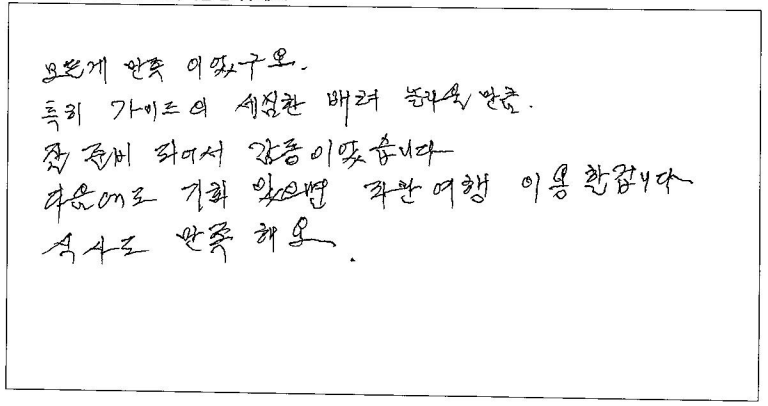 모든게 만족 이었구요.
특히 가이드의 세심한 배려 놀라울 만큼.
잘 준비 되어서 감동이었습니다
다음에도 기회 있으면 이용 할겁니다
식사도 만족 해요.